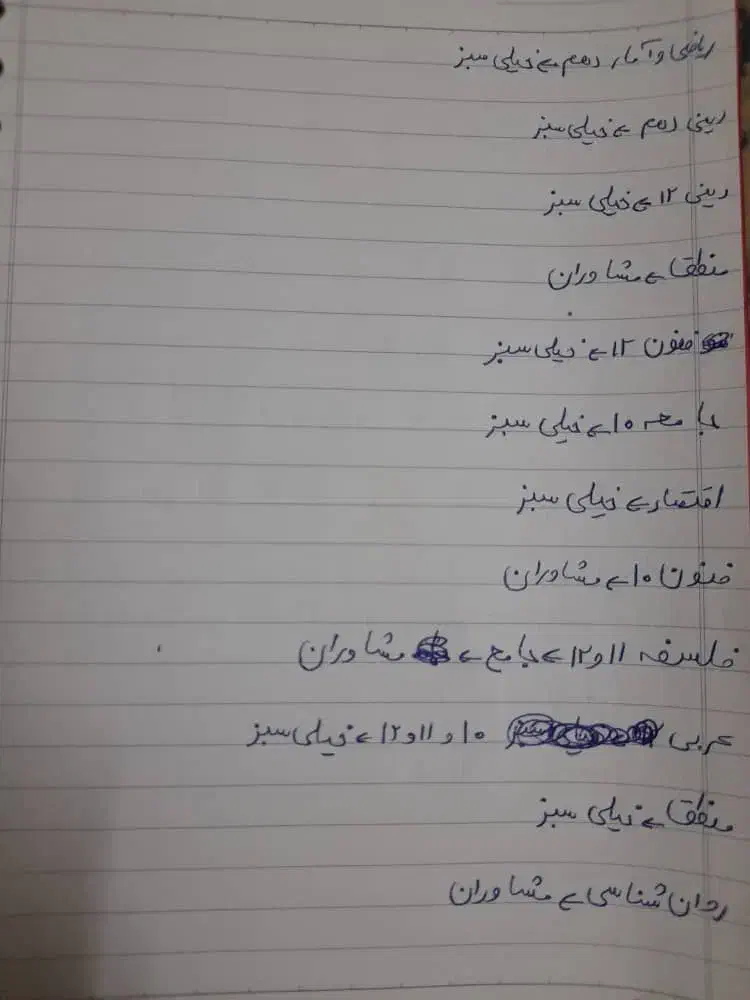 ریاضی و آمار دهم ← خیلی سبز
دینی دهم ← خیلی سبز
دینی ۱۲ ← خیلی سبز
منطق ← مشاوران
فنون ۱۲ ← خیلی سبز
جامعه ۱۰ ← خیلی سبز
اقتصاد ← خیلی سبز
فنون ۱۰ ← مشاوران
فلسفه ۱۱ و ۱۲ ← جامع ← مشاوران
عربی ۱۰ و ۱۱ و ۱۲ ← خیلی سبز
منطق ← خیلی سبز
روان شناسی ← مشاوران